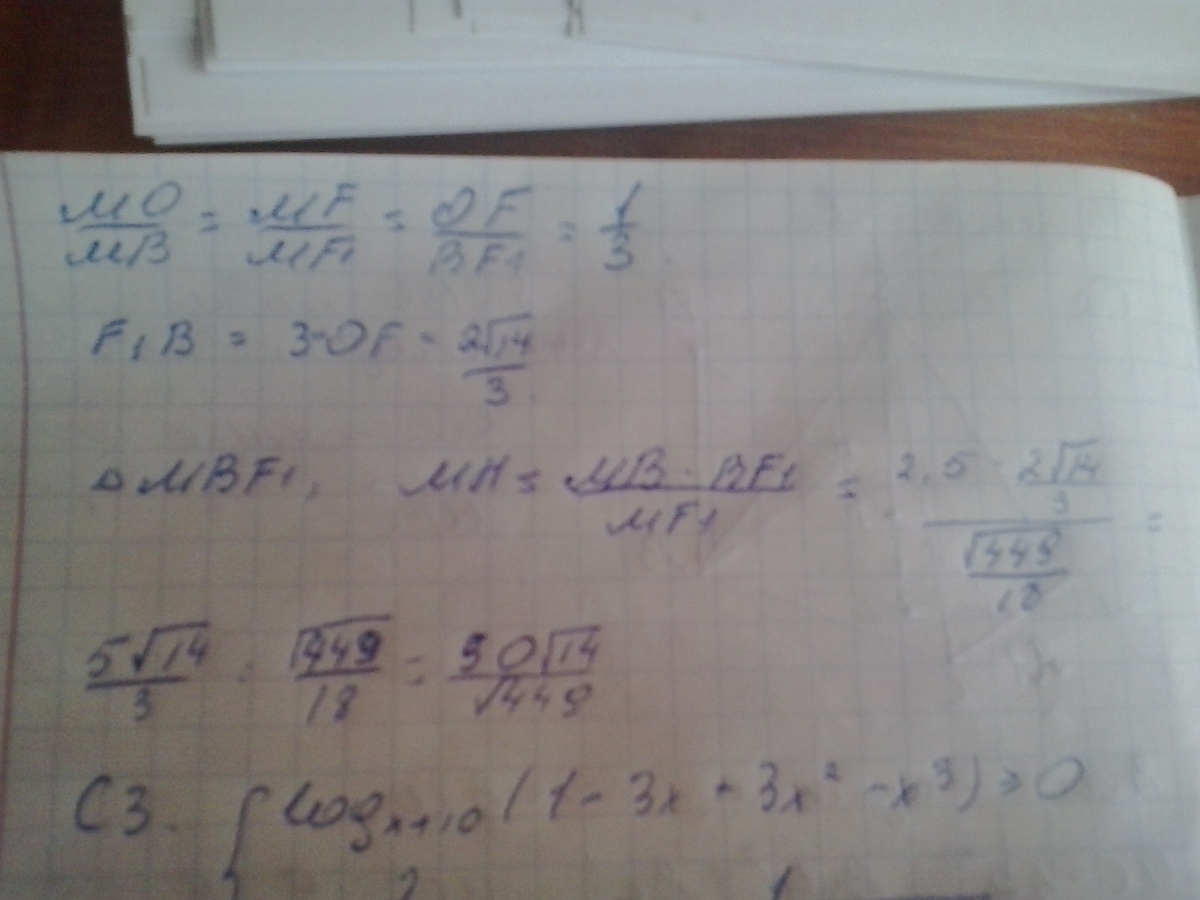 MO/MB = MF/MF₁ = OF/BF₁ = 1/3.
F₁B = 3·OF = 2√14/3.
△MBF₁, MH = MB·BF₁/MF₁ = (2,5 · 2√14/3)/(√449/18) =
5√14/3 : √449/18 = 30√14/√449
C3. { log_{x+10} (1 - 3x + 3x² - x³) ≥ 0